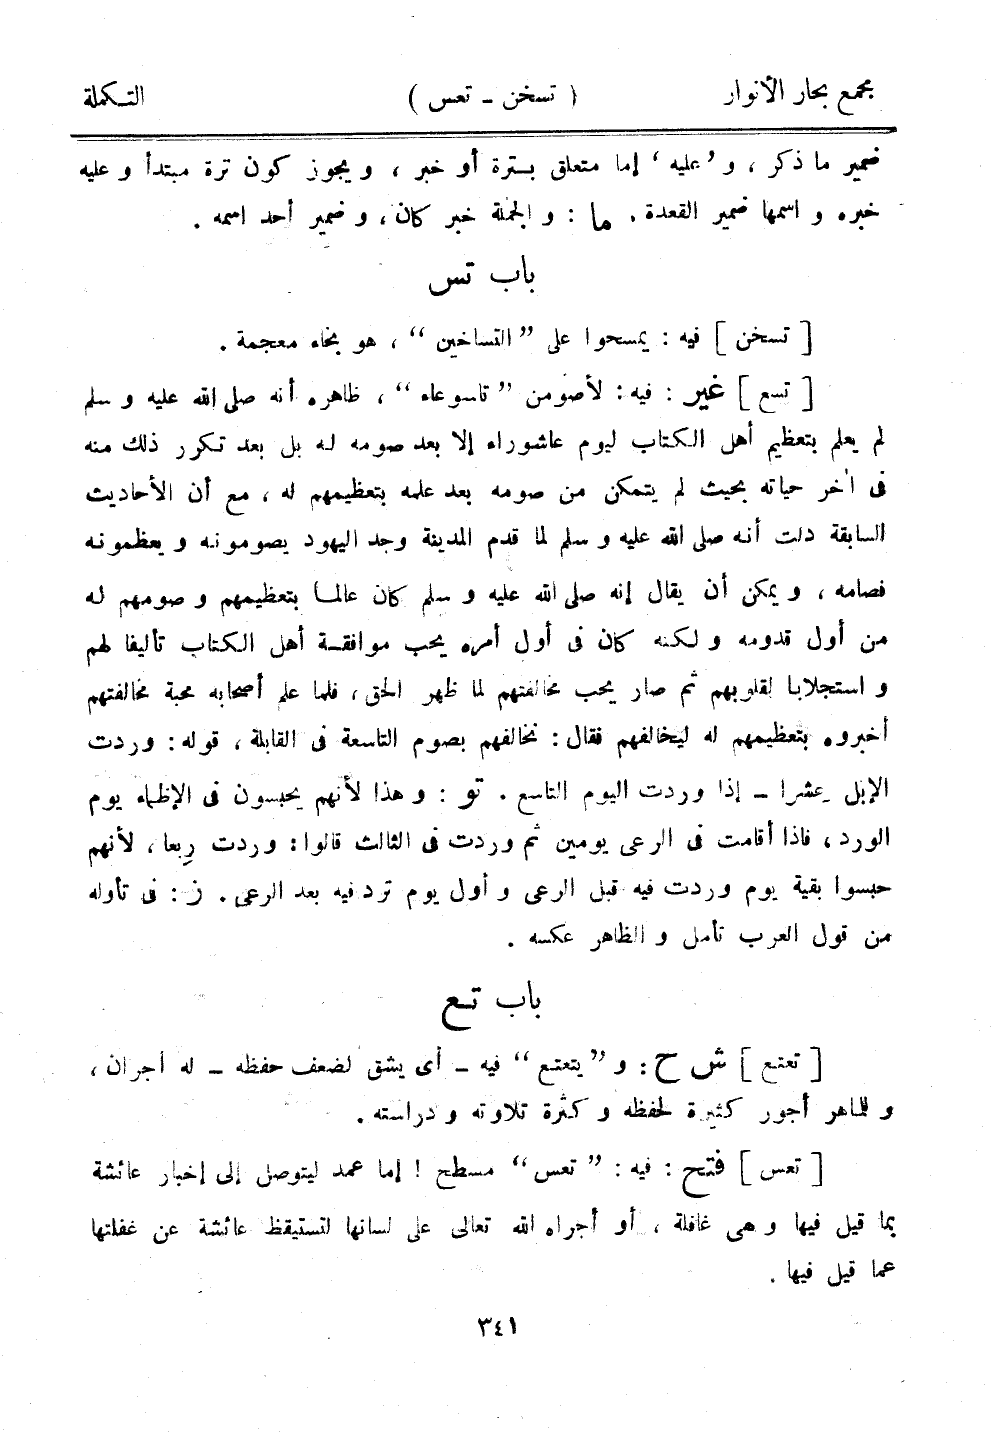 مجمع بحار الأنوار ( تسخن ـ تعس ) التكملة
ضمير ما ذكر ، و ’عليه‘ إما متعلق بسترة أو خبر ، و يجوز كون ترة مبتدأ و عليه
خبره و اسمها ضمير القعدة . ما : و الجملة خبر كان ، و ضمير أحد اسمه .
باب تس
[ تسخن ] فيه : يمسحوا على ”التساخين“ ، هو بخاء معجمة .
[ تسع ] غير : فيه : لأصومن ”تاسوعاء“ ، ظاهره أنه صلى الله عليه و سلم
لم يعلم بتعظيم أهل الكتاب ليوم عاشوراء إلا بعد صومه له بل بعد تكرر ذلك منه
فى أخر حياته بحيث لم يتمكن من صومه بعد علمه بتعظيمهم له ، مع أن الأحاديث
السابقة دلت أنه صلى الله عليه و سلم لما قدم المدينة وجد اليهود يصومونه و يعظمونه
فصامه ، و يمكن أن يقال إنه صلى الله عليه و سلم كان عالما بتعظيمهم و صومهم له
من أول قدومه و لكنه كان فى أول أمره يحب موافقة أهل الكتاب تأليفا لهم
و استجلابا لقلوبهم ثم صار يحب مخالفتهم لما ظهر الحق ، فلما علم أصحابه محبة مخالفتهم
أخبروه بتعظيمهم له ليخالفهم فقال : نخالفهم بصوم التاسعة فى القابلة ، قوله : وردت
الإبل عشرا ـ إذا وردت اليوم التاسع . تو : و هذا لأنهم يحبسون فى الإظماء يوم
الورد ، فاذا أقامت فى الرعى يومين ثم وردت فى الثالث قالوا : وردت رِبعا ، لأنهم
حبسوا بقية يوم وردت فيه قبل الرعى و أول يوم ترد فيه بعد الرعى . ز : فى تأوله
من قول العرب تأمل و الظاهر عكسه .
باب تع
[ تعتع ] ش ح : و ”يتعتع“ فيه ـ أى يشق لضعف حفظه ـ له أجران ،
و للماهر أجور كثيرة لحفظه و كثرة تلاوته و دراسته .
[ تعس ] فتح : فيه : ”تعس“ مسطح ! إما عمد ليتوصل إلى إخبار عائشة
بما قيل فيها و هى غافلة ، أو أجراه الله تعالى على لسانها لتستيقظ عائشة عن غفلتها
عما قيل فيها .
٣٤١